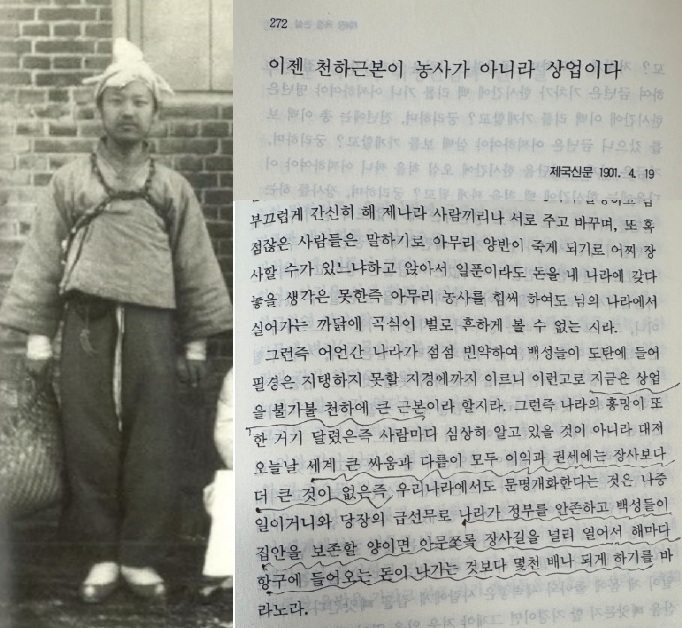 272
이젠 천하근본이 농사가 아니라 상업이다
제국신문 1901. 4. 19
부끄럽게 간신히 해 제나라 사람끼리나 서로 주고 바꾸며, 또 혹
점잖은 사람들은 말하기로 아무리 양반이 죽게 되기로 어찌 장
사할 수가 있느냐하고 앉아서 일푼이라도 돈을 내 나라에 갖다
놓을 생각은 못한즉 아무리 농사를 힘써 하여도 남의 나라에서
실어가는 까닭에 곡식인 별로 흔하게 볼 수 없는 시라.
그런즉 어언간 나라가 점점 빈약하여 백성들이 도탄에 들어
필경은 지탱하지 못할 지경에까지 이르니 이런고로 지금은 상업
을 불가불 천하에 큰 근본이라 할지라. 그런즉 나라의 흥망이 또
한 거기 달렸은즉 사람마다 심상히 알고 있을 것이 아니라 대저
오늘날 세계 큰 싸움과 다툼이 모두 이익과 권세에는 장사보다
더 큰 것이 없은즉, 우리나라에서도 문명개화한다는 것은 나중
일이거니와 당장의 급선무로 나라가 정부를 안존하고 백성들이
집안을 보존할 양이면 아무쪼록 장사길을 널리 열어서 해마다
항구에 들어오는 돈이 나가는 것보다 몇천 배나 되게 하기를 바
라노라.